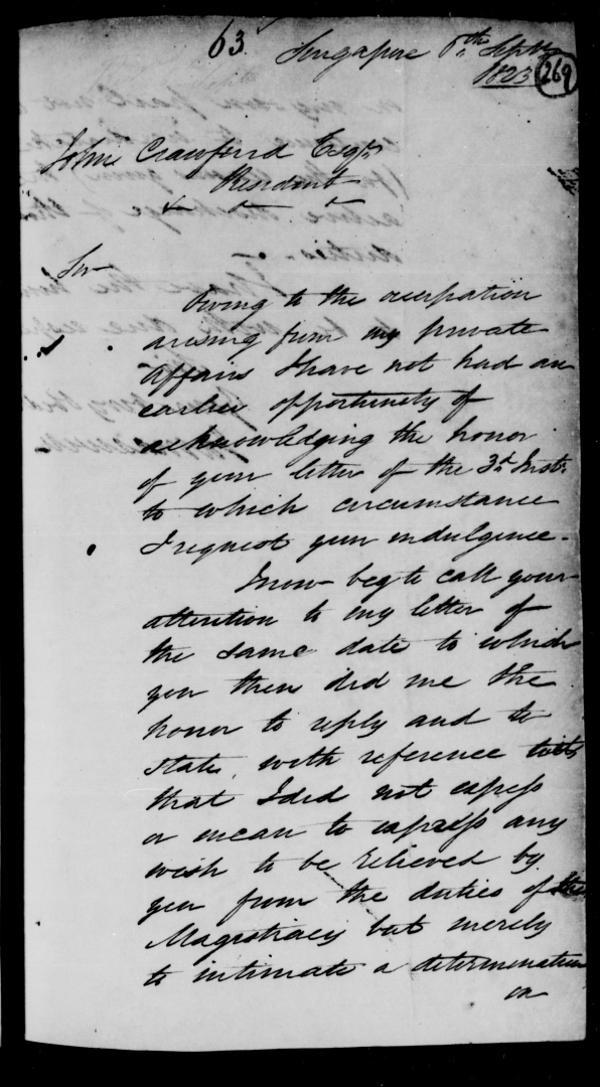 63.
Singapore 6th Septr
1823
269
John Crawfurd Esqr
Resident
Sir
Owing to the occupation
arising from my private
Affairs I have not had an
earlier opportunity of
acknowledging the honor
of your letter of the 3d Inst.
to which circumstance
I request your indulgence.
I now beg to call your
attention to my letter of
the same date to which
you then did me the
honor to reply and to
state, with reference to it
that I did not express
or mean to express any
wish to be relieved by
you from the duties of the
Magistracy but merely
to intimate a determination
on